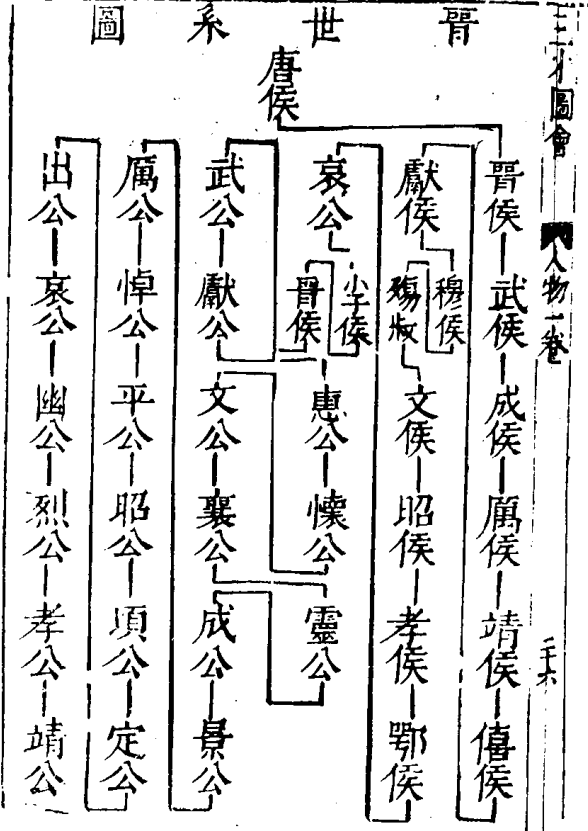 三才圖會 人物一卷 二十六
晉世系圖
唐侯
晉侯 武侯 成侯 厲侯 靖侯 僖侯
獻侯 穆侯 殤叔 文侯 昭侯 孝侯 鄂侯
哀公 小子侯 晉侯 惠公 懷公 靈公
武公 獻公 文公 襄公 成公 景公
厲公 悼公 平公 昭公 頃公 定公
出公 哀公 幽公 烈公 孝公 靖公